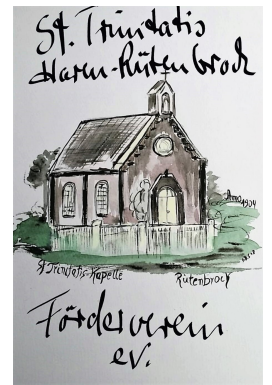 St. Trinitatis
Haren-Rütenbrock
Anno 1904
St Trinitatis-Kapelle
Rütenbrock
Förderverein
e.V.